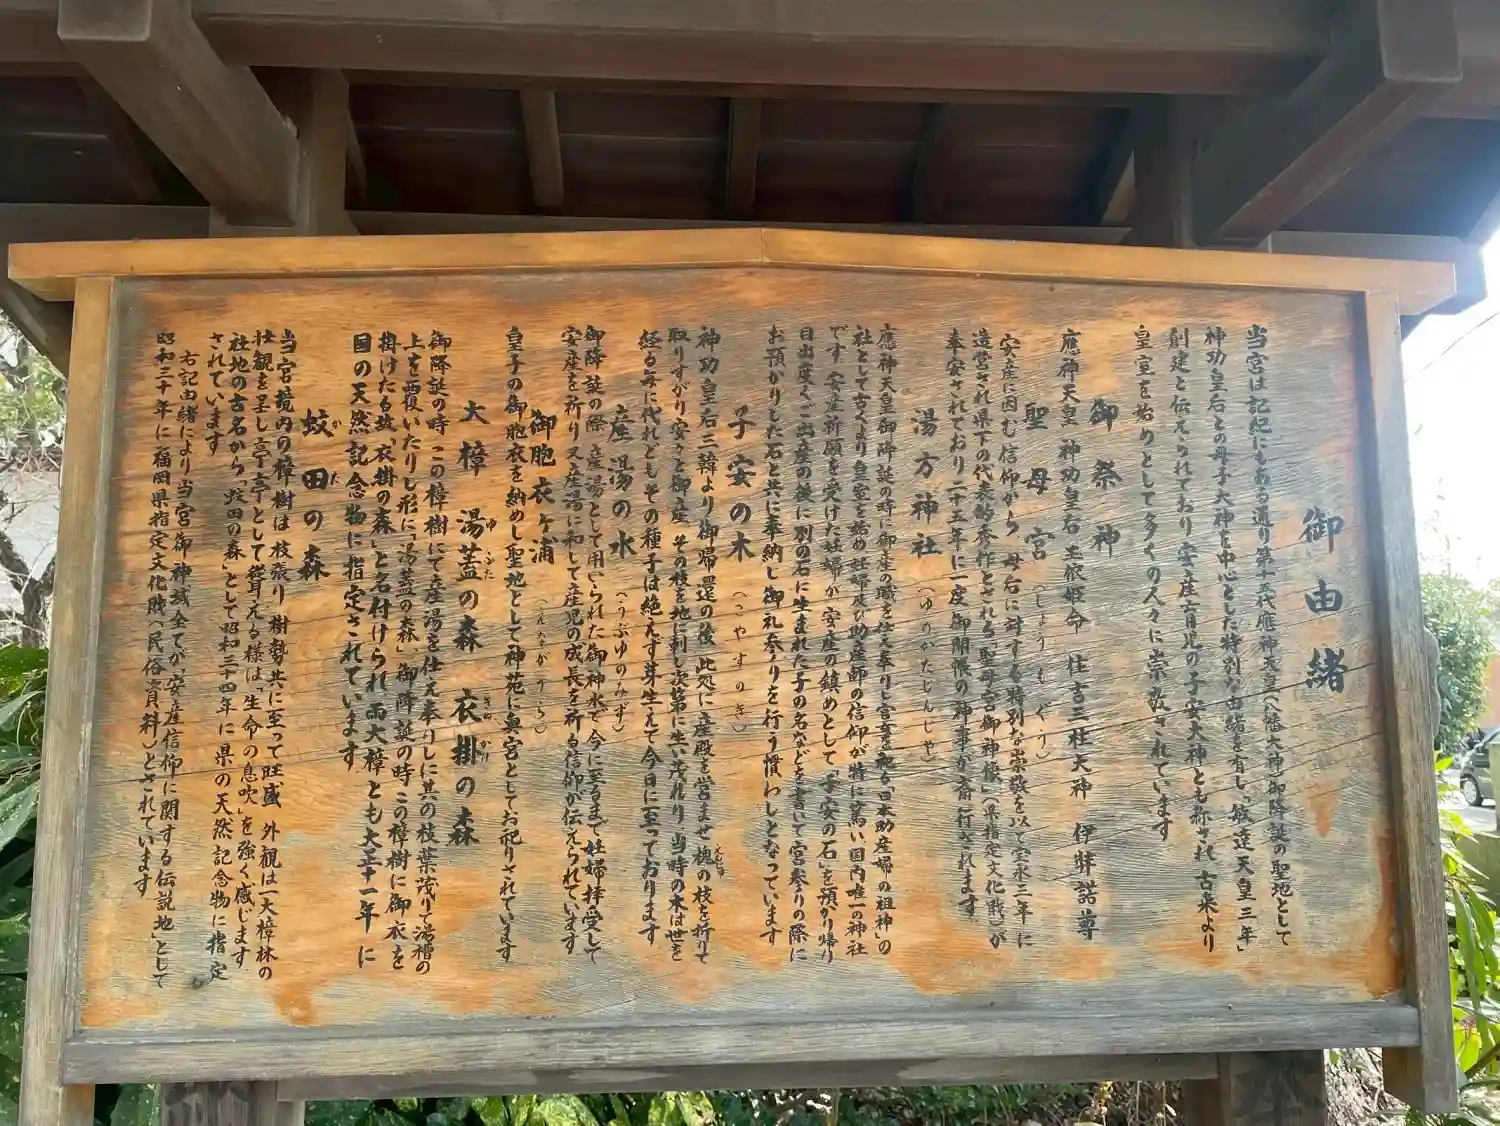 御由緒
当宮は記紀にもある通り第十五代應神天皇(八幡大神)御降誕の聖地として
神功皇后との母子大神を中心とした特別な由緒を有し「敏達天皇三年」
創建と伝えられており安産育児の子安大神とも称され古来より
皇室を始めとして多くの人々に崇敬されています
御祭神
應神天皇 神功皇后 玉依姫命 住吉三柱大神 伊弉諾尊
聖母宮(しょうもぐう)
安産に因む信仰から 母后に対する特別な崇敬を以て宝永三年に
造営され県下の代表的秀作とされる「聖母宮御神像」(県指定文化財)が
奉安されており二十五年に一度御開帳の神事が斎行されます
湯方神社(ゆのかたじんじゃ)
應神天皇御降誕の時に御産の職を仕え奉りし官女を祀る「日本助産婦の祖神」の
社として古くより皇室を始め妊婦及び助産師の信仰が特に篤い国内唯一の神社
です 安産祈願を受けた妊婦が安産の鎮めとして「子安の石」を預かり帰り
目出度くご出産の後に別の石に生まれた子の名などを書いて宮参りの際に
お預かりした石と共に奉納し御礼参りを行う慣わしとなっています
子安の木(こやすのき)
神功皇后三韓より御帰還の後 此処に産殿を営ませ槐の枝を折りて
えんじゅ
取りすがり安々と御産 その枝を地に刺し次第に生い茂れり 当時の木は世を
経る毎に代れどもその種子は絶えず芽生えて今日に至っております
産湯の水(うぶゆのみず)
御降誕の際 産湯として用いられた御神水で今に至るまで妊婦拝受して
安産を祈り又産湯に和して産児の成長を祈る信仰が伝えられています
御胞衣ヶ浦(えながうら)
皇子の御胞衣を納めし聖地として神苑に奥宮としてお祀りされています
大樟 湯蓋の森 衣掛の森
ゆ ふた きぬ かけ
御降誕の時 この樟樹にて産湯を仕え奉りしに其の枝葉茂りて湯槽の
上を覆いたりし形に「湯蓋の森」御降誕の時この樟樹に御衣を
掛けたる故「衣掛の森」と名付けられ両大樟とも大正十一年に
国の天然記念物に指定されています
蚊田の森
か だ
当宮境内の樟樹は枝張り樹勢共に至って旺盛 外観は一大樟林の
壮観を呈し亭亭として聳える様は「生命の息吹」を強く感じます
社地の古名から「蚊田の森」として昭和三十四年に県の天然記念物に指定
されています
右記由緒により当宮御神域全てが「安産信仰に関する伝説地」として
昭和三十年に福岡県指定文化財(民俗資料)とされています